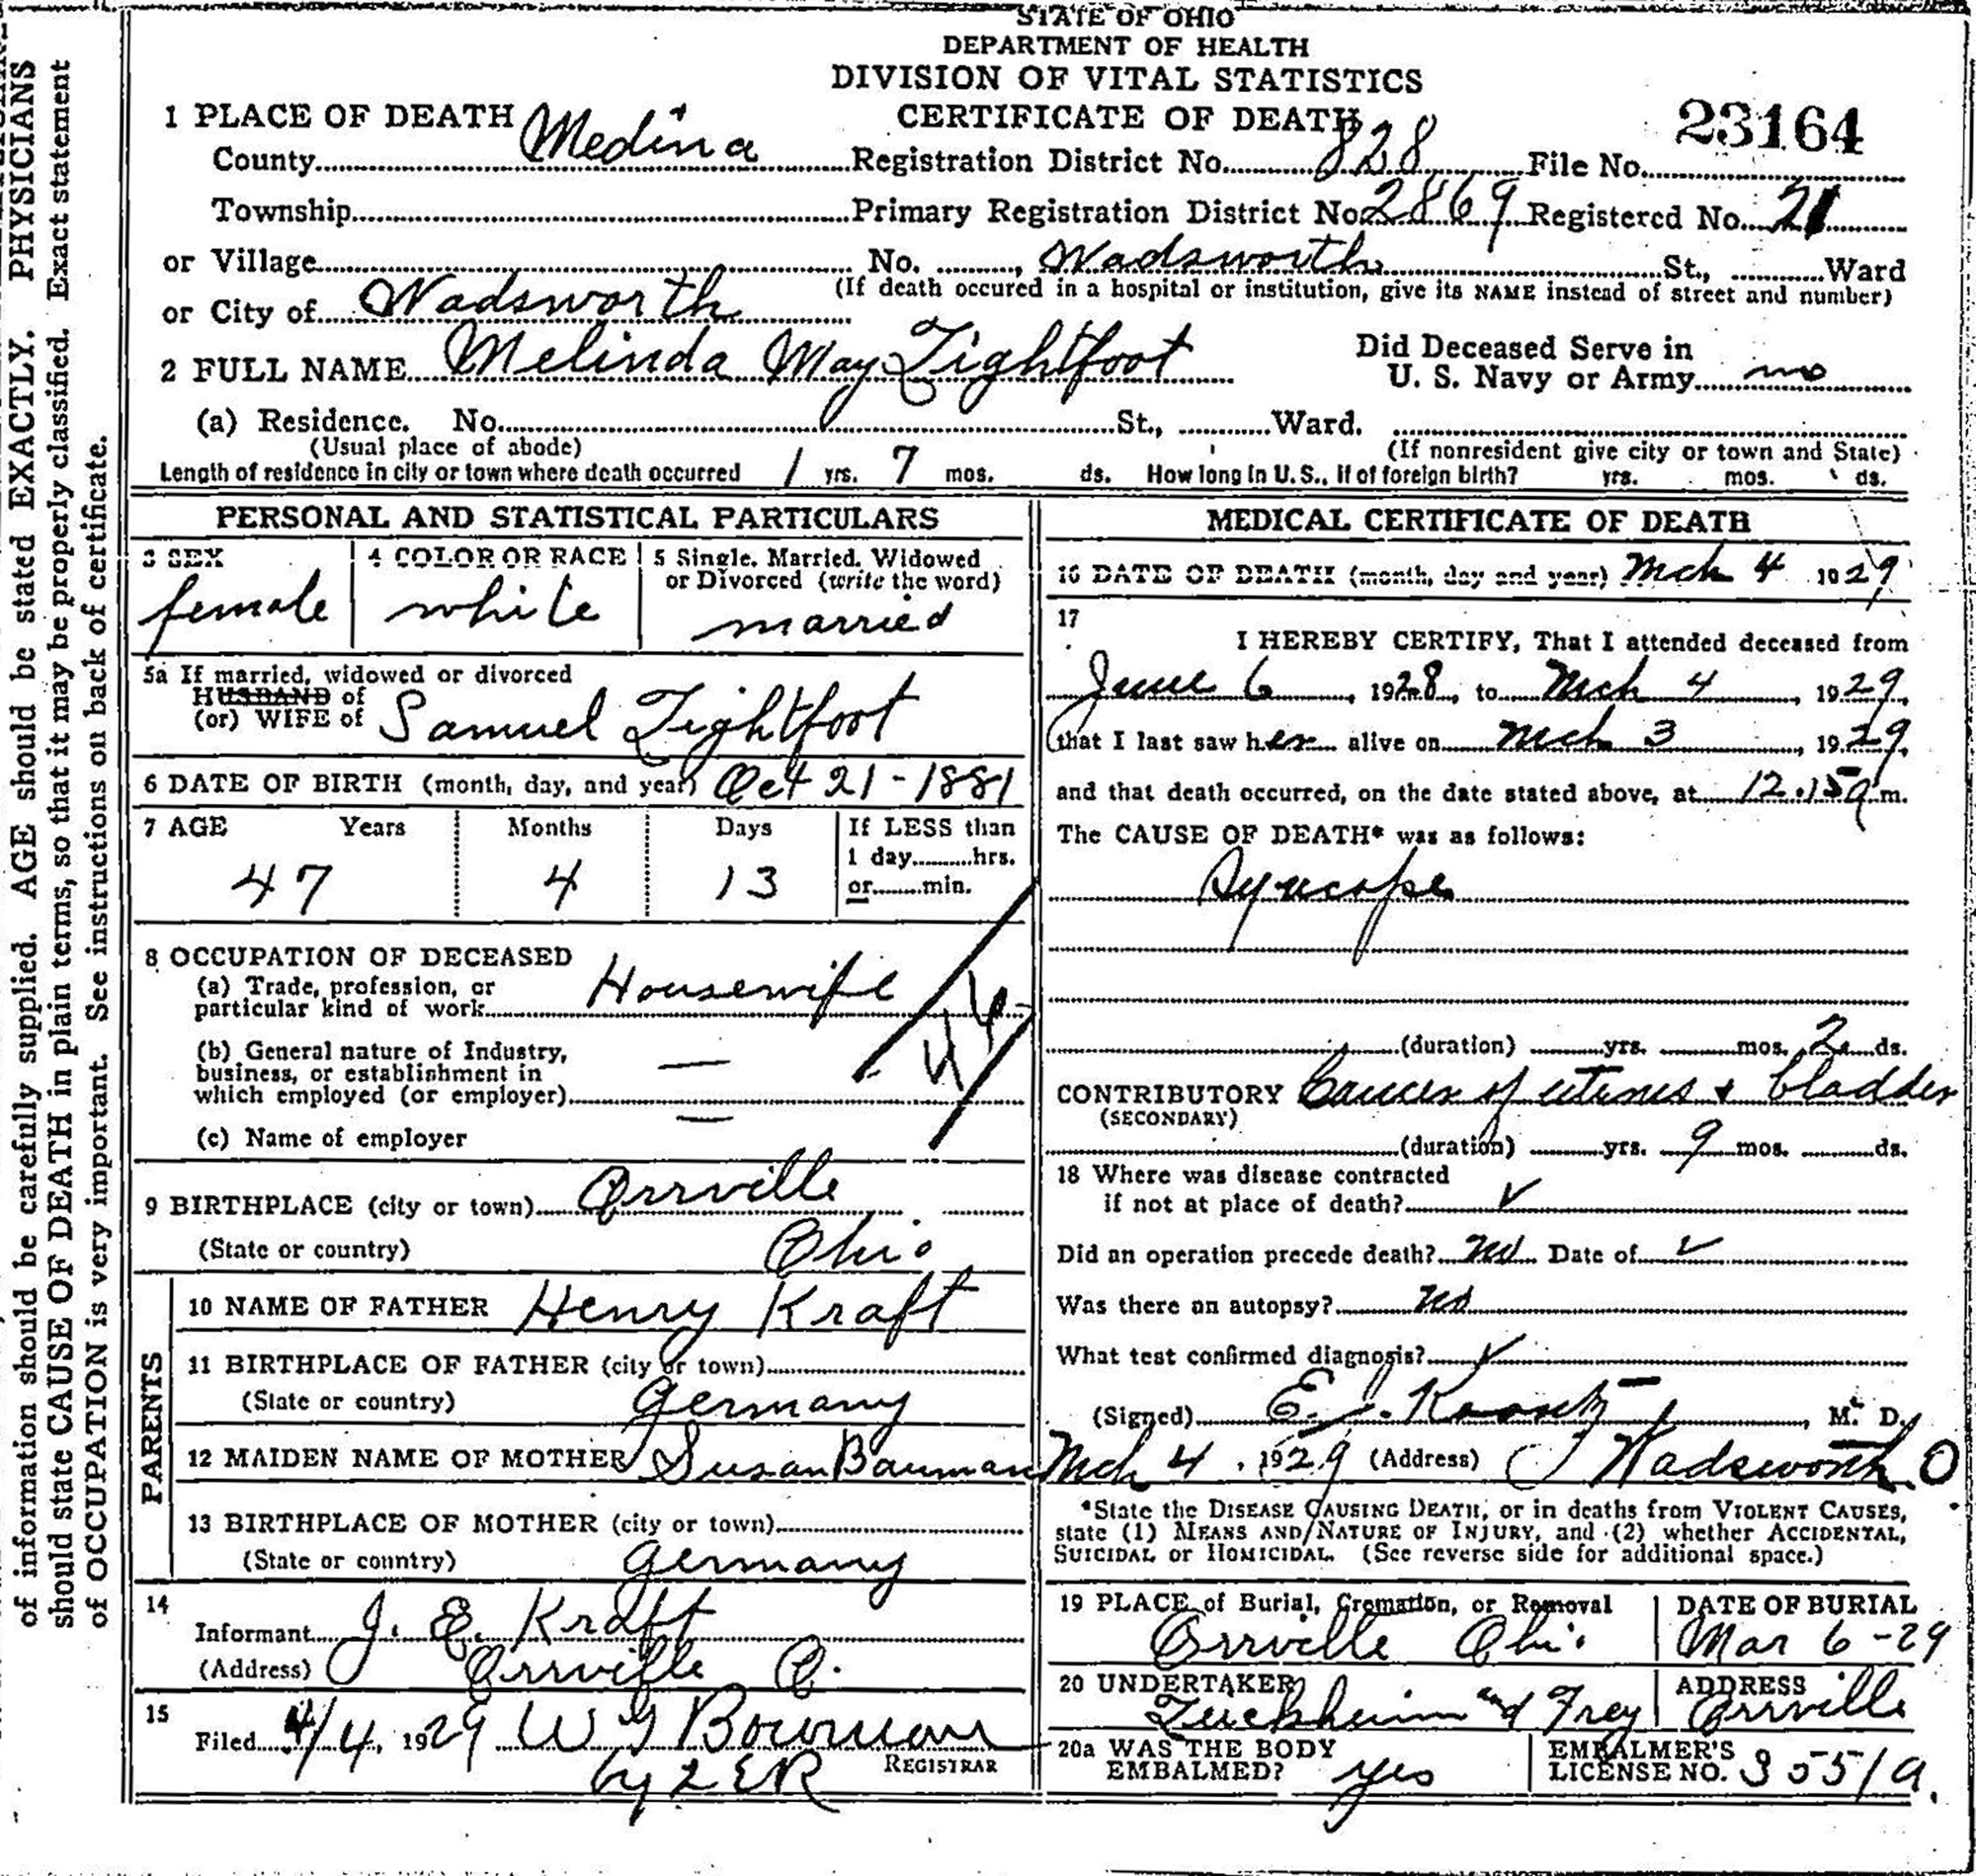 STATE OF OHIO
DEPARTMENT OF HEALTH
DIVISION OF VITAL STATISTICS
CERTIFICATE OF DEATH
23164
1 PLACE OF DEATH
County Medina Registration District No. 828 File No.
Township Primary Registration District No. 2869 Registered No. 21
or Village No. , Wadsworth St., Ward
(If death occured in a hospital or institution, give its NAME instead of street and number)
or City of Wadsworth
2 FULL NAME Melinda May Lightfoot
Did Deceased Serve in
U. S. Navy or Army no
(a) Residence. No. St., Ward.
(Usual place of abode) (If nonresident give city or town and State)
Length of residence in city or town where death occurred 1 yrs. 7 mos. ds. How long in U. S., if of foreign birth? yrs. mos. ds.
PERSONAL AND STATISTICAL PARTICULARS
3 SEX
female
4 COLOR OR RACE
white
5 Single, Married, Widowed
or Divorced (write the word)
married
5a If married, widowed or divorced
HUSBAND of
(or) WIFE of Samuel Lightfoot
6 DATE OF BIRTH (month, day, and year) Oct 21 - 1881
7 AGE Years Months Days If LESS than
1 day hrs.
or min.
47 4 13
8 OCCUPATION OF DECEASED
(a) Trade, profession, or
particular kind of work Housewife
(b) General nature of Industry,
business, or establishment in
which employed (or employer) —
(c) Name of employer —
9 BIRTHPLACE (city or town) Orrville
(State or country) Ohio
PARENTS
10 NAME OF FATHER Henry Kraft
11 BIRTHPLACE OF FATHER (city or town)
(State or country) Germany
12 MAIDEN NAME OF MOTHER Susan Bauman
13 BIRTHPLACE OF MOTHER (city or town)
(State or country) Germany
14
Informant J. E. Kraft
(Address) Orrville O.
15
Filed 4/4, 1929 W G Bowman
REGISTRAR
by
MEDICAL CERTIFICATE OF DEATH
16 DATE OF DEATH (month, day and year) Mch 4 1929
17
I HEREBY CERTIFY, That I attended deceased from
June 6, 1928, to Mch 4, 1929,
that I last saw her alive on Mch 3, 1929,
and that death occurred, on the date stated above, at 12.15 a m.
The CAUSE OF DEATH* was as follows:
Syncope
(duration) yrs. mos. 2 ds.
CONTRIBUTORY Cancer of uterus + bladder
(SECONDARY)
(duration) yrs. 9 mos. ds.
18 Where was disease contracted
if not at place of death? ✓
Did an operation precede death? no Date of ✓
Was there an autopsy? no
What test confirmed diagnosis? ✓
(Signed) E. J. , M. D.
Mch 4, 1929 (Address) Wadsworth O.
*State the DISEASE CAUSING DEATH, or in deaths from VIOLENT CAUSES,
state (1) MEANS AND NATURE OF INJURY, and (2) whether ACCIDENTAL,
SUICIDAL or HOMICIDAL. (See reverse side for additional space.)
19 PLACE of Burial, Cremation, or Removal
Orrville Ohio
DATE OF BURIAL
Mar 6 - 29
20 UNDERTAKER
and Frey
ADDRESS
Orrville
20a WAS THE BODY
EMBALMED? yes
EMBALMER'S
LICENSE NO. 3551 a.
of information should be carefully supplied. AGE should be stated EXACTLY. PHYSICIANS
should state CAUSE OF DEATH in plain terms, so that it may be properly classified. Exact statement
of OCCUPATION is very important. See instructions on back of certificate.